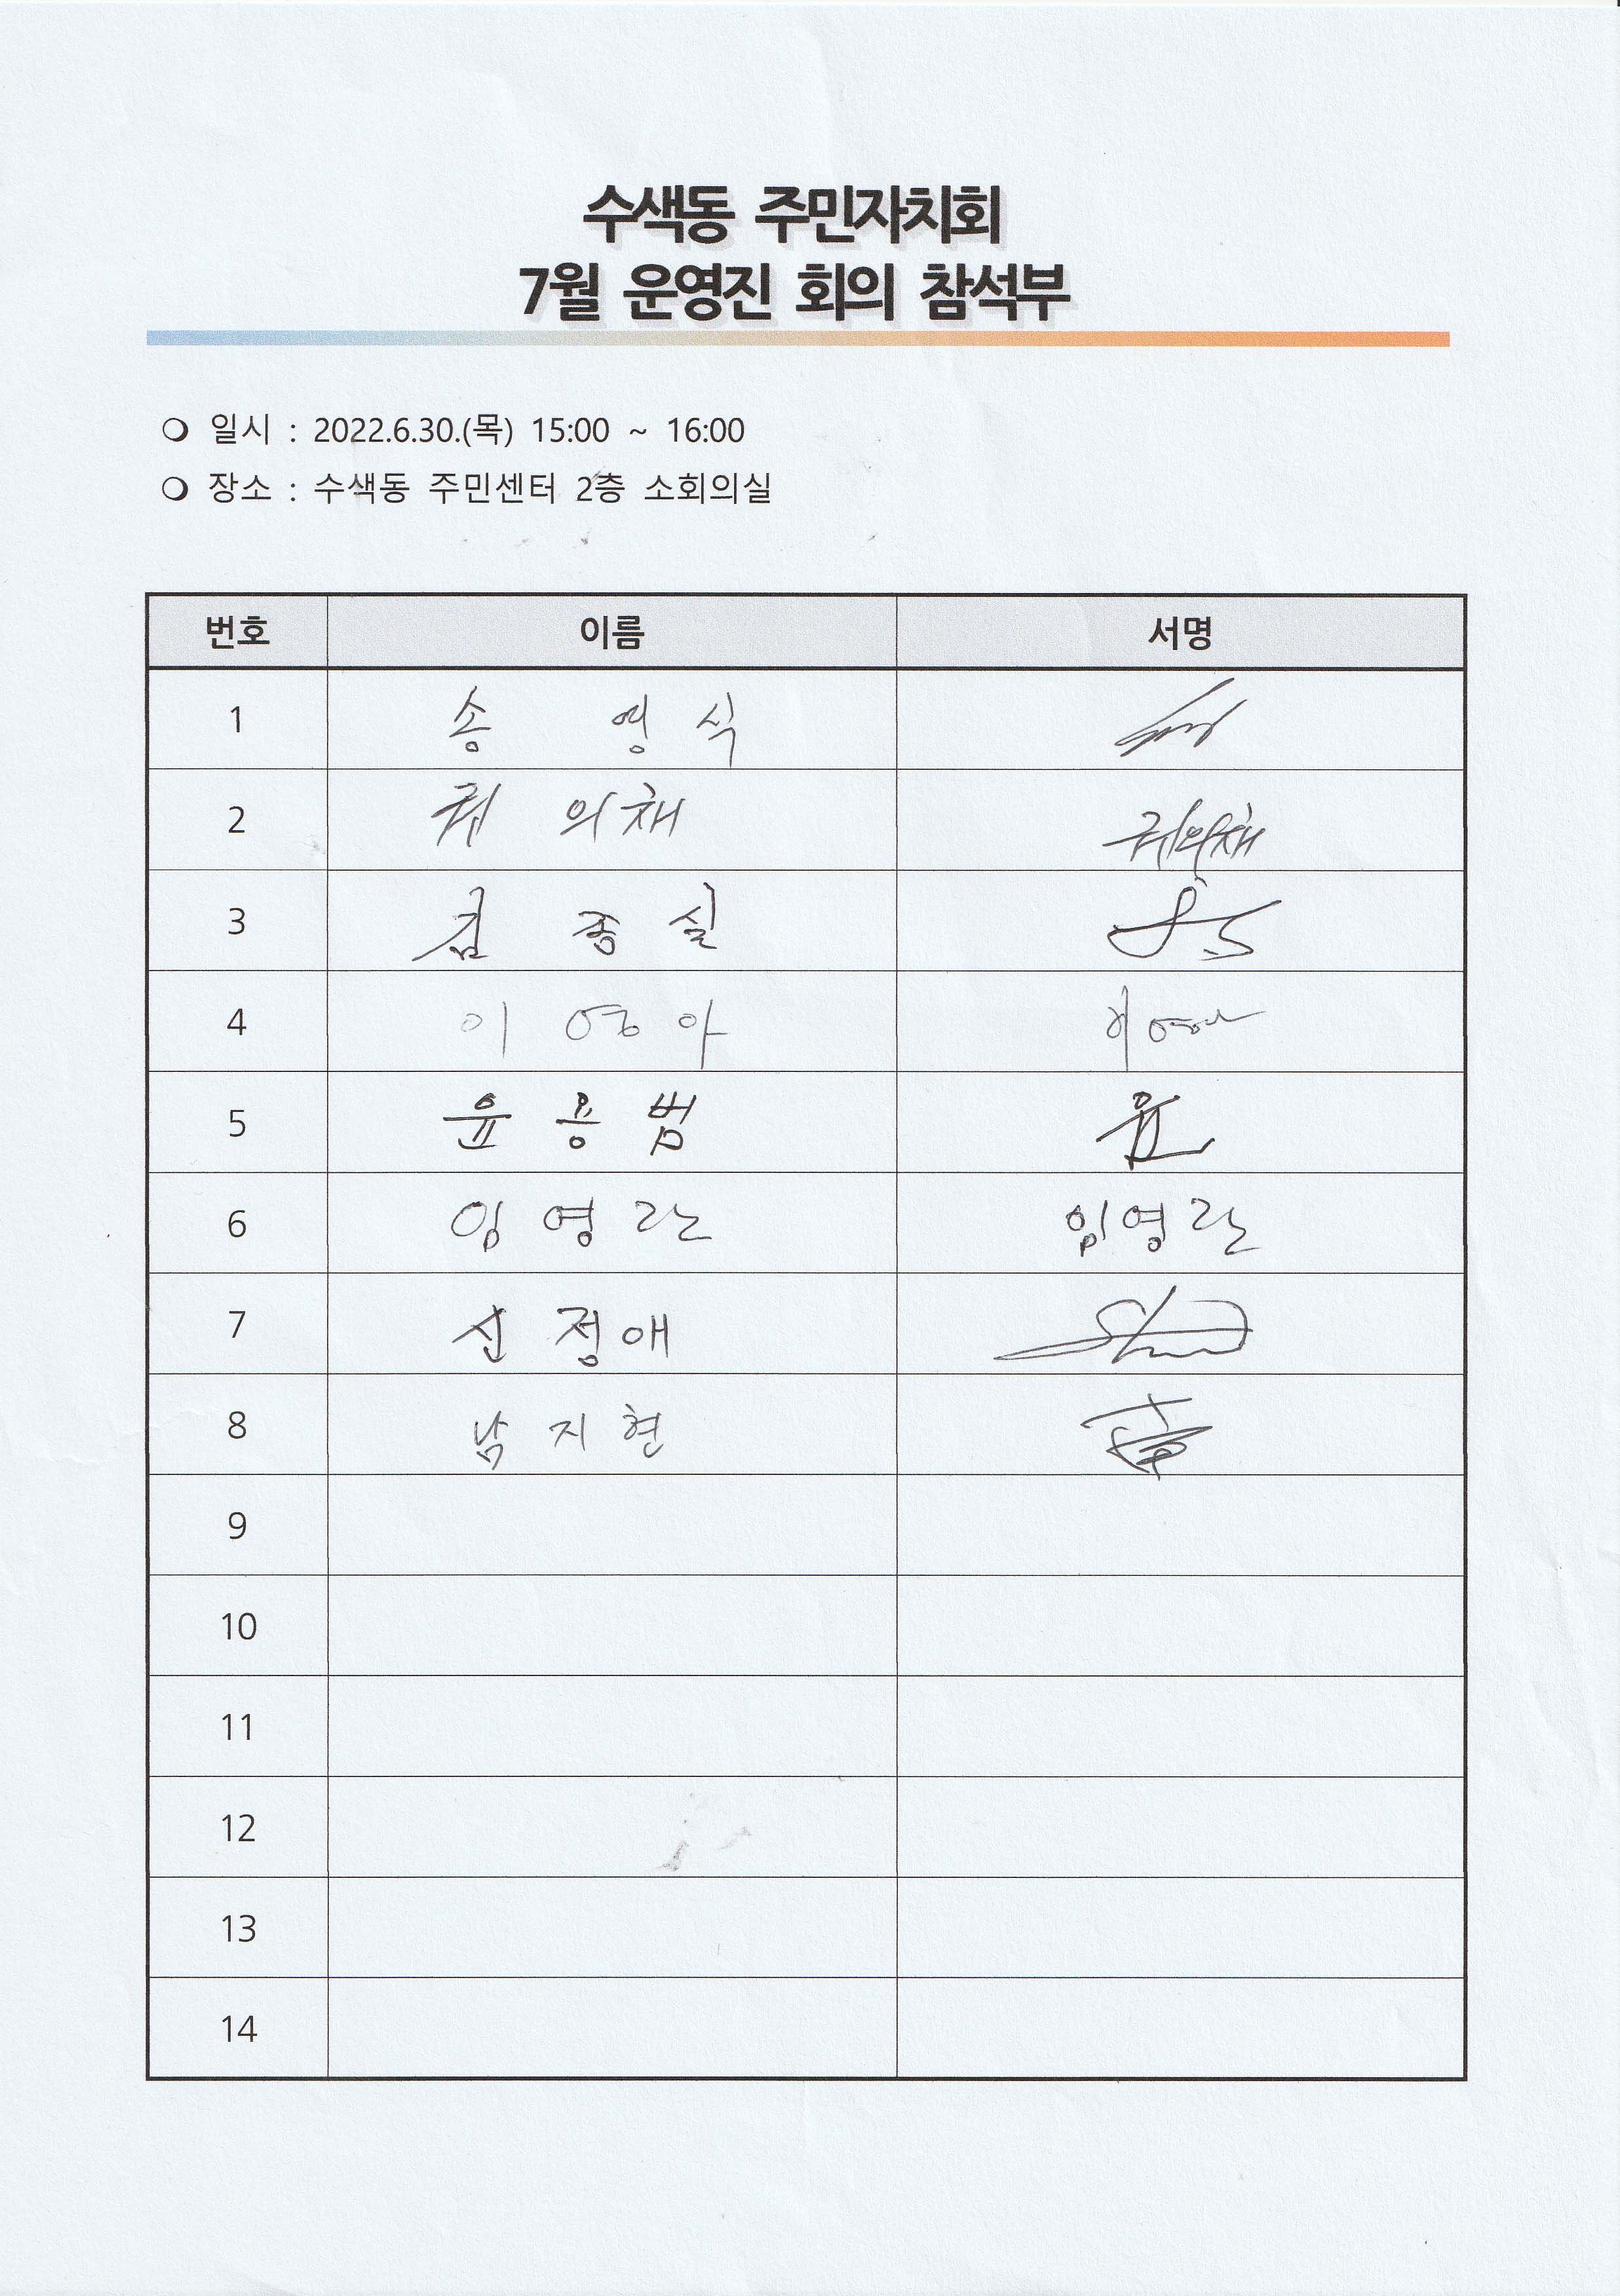 수색동 주민자치회
7월 운영진 회의 참석부
❍ 일시 : 2022.6.30.(목) 15:00 ~ 16:00
❍ 장소 : 수색동 주민센터 2층 소회의실
번호 이름 서명
1 송 영 식
2 권 의 채
3 김 종 실
4 이 영 아 이영아
5 윤 용 범 윤
6 임 영 란 임영란
7 신 정 애
8 남 지 현
9
10
11
12
13
14